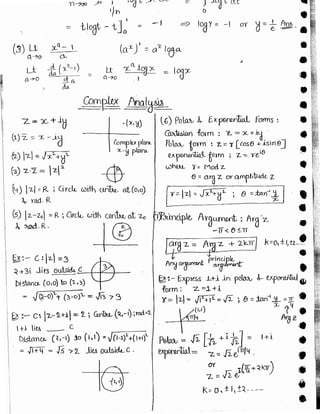 = tlogt - t]₀¹ = -1 ⇒ logy = -1 or y = 1/e Ans.
(3) Lt a→0 (x^a - 1)/a (a^x)' = a^x log a
Lt a→0 d/da (x^a - 1) / (d a/da) = Lt a→0 x^a logx / 1 = logx
Complex Analysis
Z = x + iy
-(x,y)
(1) Z̄ = x - iy
Complex plane
x-y plane
(2) |z| = √x²+y²
(3) z·z̄ = |z|²
(4) |z| = R ; Circle with centre at (0,0)
& rad. R
(5) |z-z₀| = R ; Circle with centre at z₀
& rad. R.
Ex:- C: |z| = 3
2+3i lies outside C
Distance (0,0) to (2,3)
= √(2-0)²+(3-0)² = √13 > 3
Ex:- C: |z-2+i| = 2 ; Centre (2,-1); rad=2
1+i lies C
Distance (2,-1) to (1,1) = √(1-2)²+(1+1)²
= √1+4 = √5 > 2 lies outside C.
(6) Polar & Exponential Forms :
Cartesian form : z = x + iy
Polar form : z = r[cosθ + isinθ]
exponential form ; z = re^{iθ}
where r = Mod z
θ = arg z or amplitude z
r = |z| = √x²+y² ; θ = tan⁻¹ y/x
Principle Argument : Arg z
-π < θ ≤ π
arg z = Arg z + 2kπ k=0,±1,±2...
Any argument
principle argument
Ex:- Express 1+i in polar & exponential
form: z = 1+i
r = |z| = √1²+1² = √2 ; θ = tan⁻¹ 1/1 = π/4
(1,1)
π/4
Arg z
Polar = √2 [1/√2 + i 1/√2] = 1+i
exponential = z = √2 e^{iπ/4}
or
z = √2 e^{i(π/4 + 2kπ)}
K = 0, ±1, ±2.....